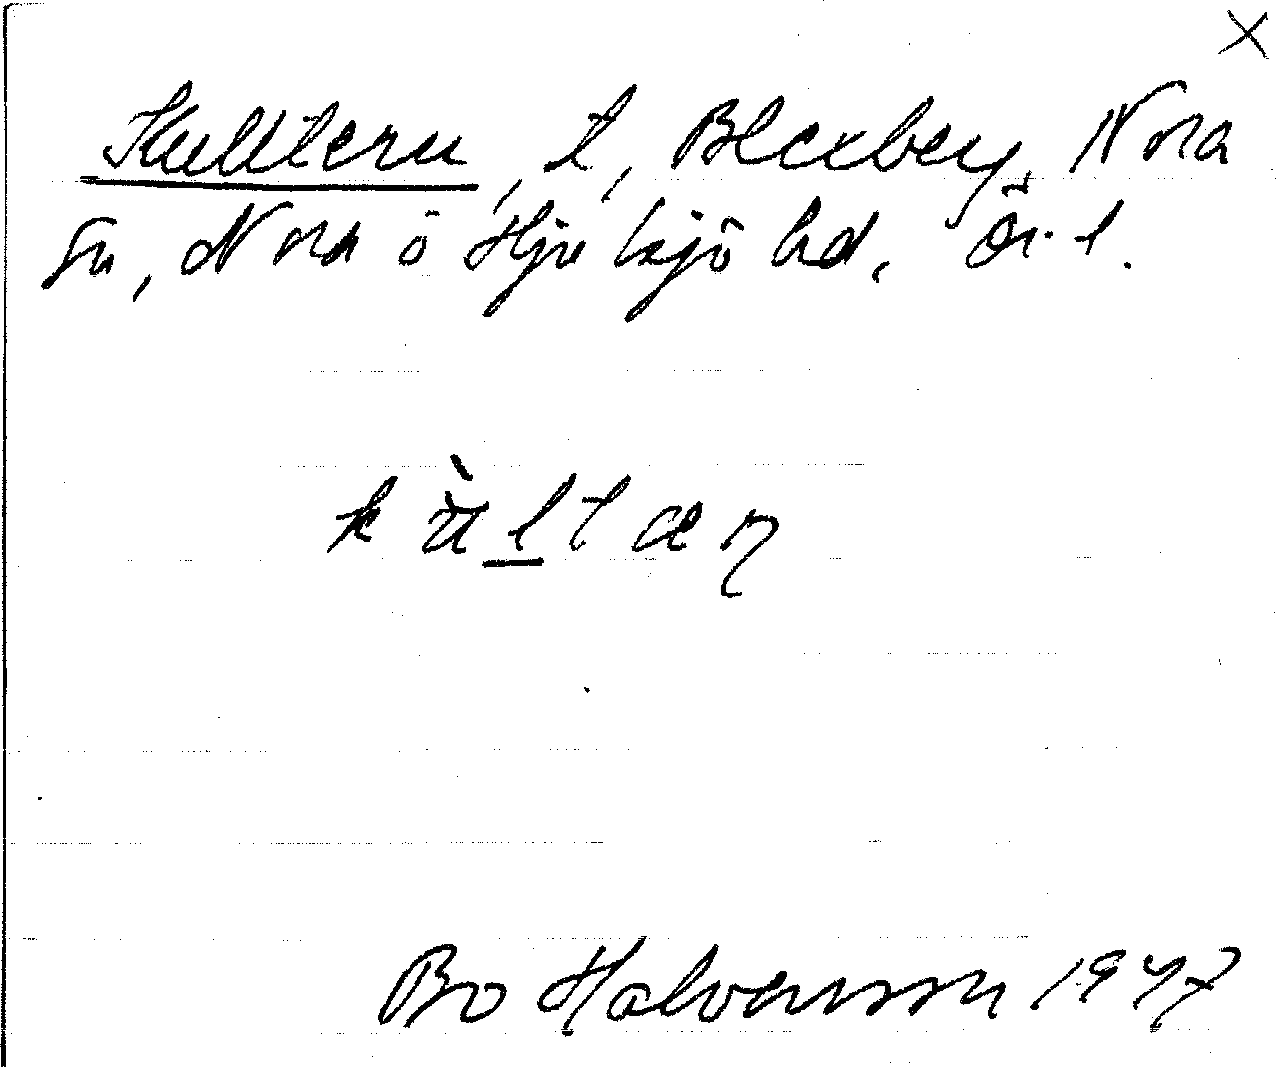 X
Kulltern, t, Blexberg, Nora
sn, Nora o Hjulsjö hd, Ör. l.
Bo Halvarsson 1947